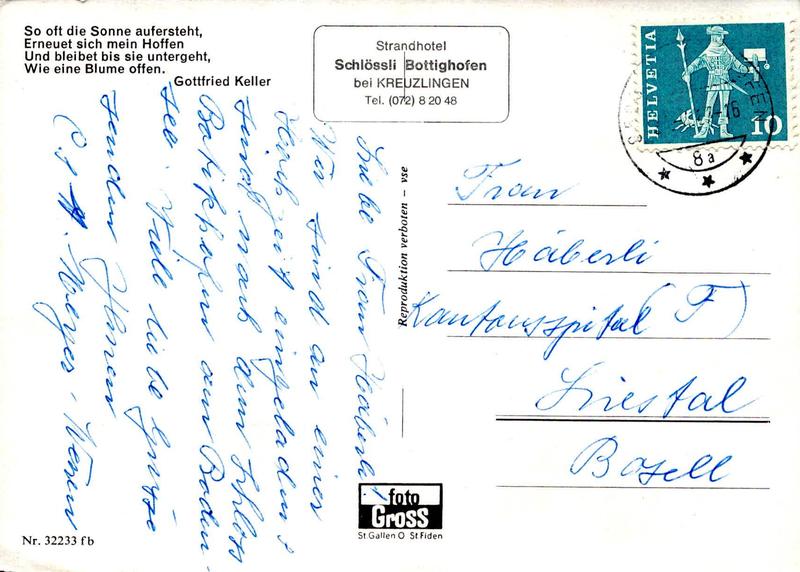 So oft die Sonne aufersteht,
Erneuet sich mein Hoffen
Und bleibet bis sie untergeht,
Wie eine Blume offen.
Gottfried Keller
Strandhotel
Schlössli Bottighofen
bei KREUZLINGEN
Tel. (072) 8 20 48
HELVETIA
10
8a
Liebe Frau Häberli!
Wir sind an einer
Hochzeit eingeladen &
sind nach dem Schloss
Bottighofen am Boden-
see. Viele liebe Grüsse
senden Ihnen
Reproduktion verboten – vse
Frau
Häberli
Kantonsspital (F)
Liestal
Basell
foto
Gross
St. Gallen O St Fiden
Nr. 32233 fb